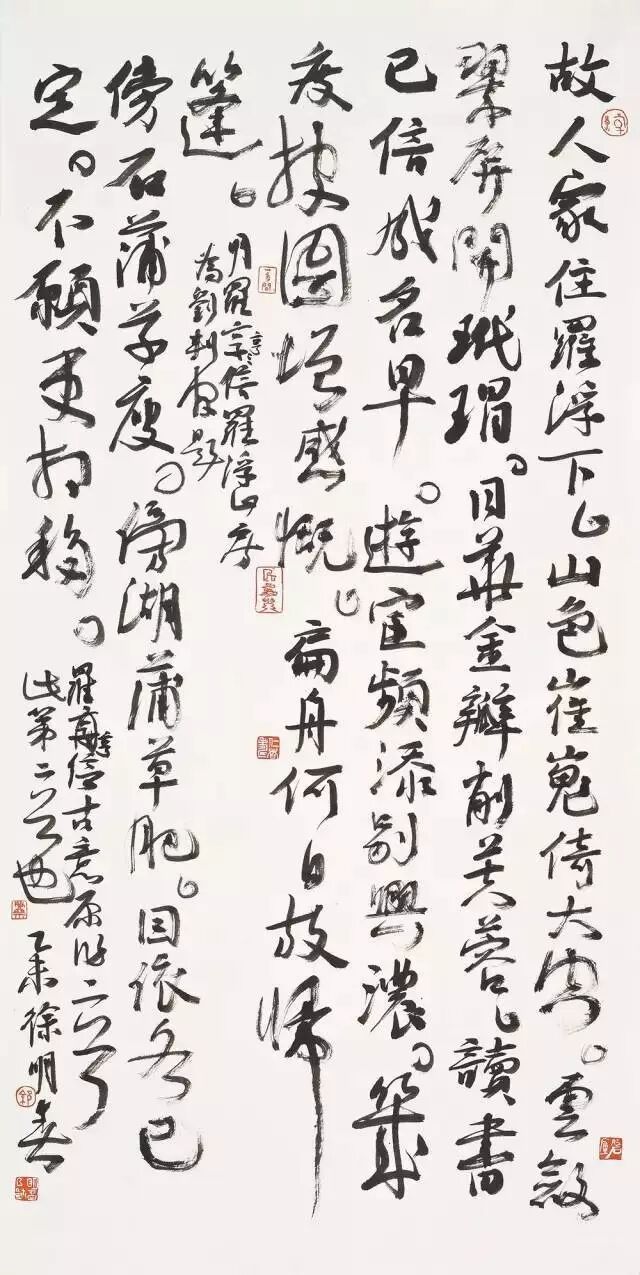 故人家住羅浮下。山色崔嵬倚大空。雲斂
翠屏開玳瑁。日華金瓣削芙蓉。讀書
已信成名早。遊宦頻添別興濃。幾
度披圖增感慨。扁舟何日放歸
篷。明羅亨信羅浮山房
為劉判官題
傍石蒲草瘦。傍湖蒲草肥。因依各已
定。不願更相移。羅亨信古意原詩二首
此第二首也 乙未徐明春